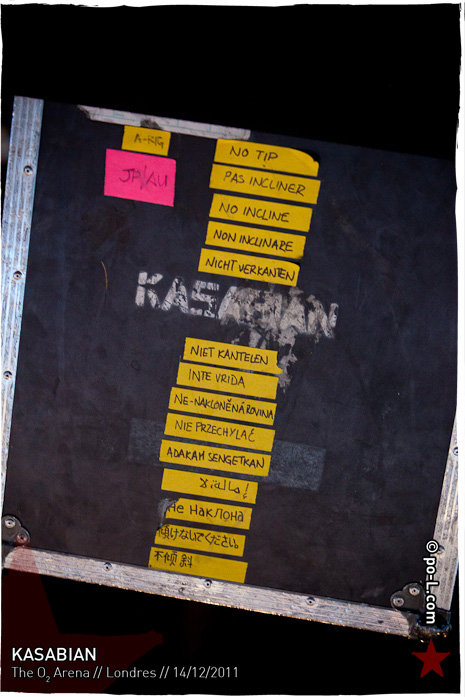 A-RIG
JP/AU
NO TIP
PAS INCLINER
NO INCLINE
NON INCLINARE
NICHT VERKANTEN
KASABIAN
NIET KANTELEN
INTE VRIDA
NE-NAKLONĚNÁ ROVINA
NIE PRZECHYLAĆ
ADAKAH SENGETKAN
إمالة: لا
Не наклона
傾けないでください
不傾斜
© po-L.com
KASABIAN
The O2 Arena // Londres // 14/12/2011